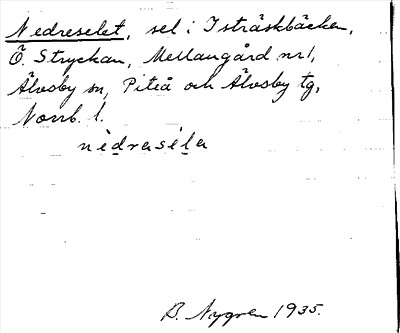 Nedreselet, sel i Isträskbäcken,
Ö. Stryckan, Mellangård nr 1,
Älvsby sn, Piteå och Älvsby tg,
Norrb. l.
nèdrasèla
B. Nygren 1935.